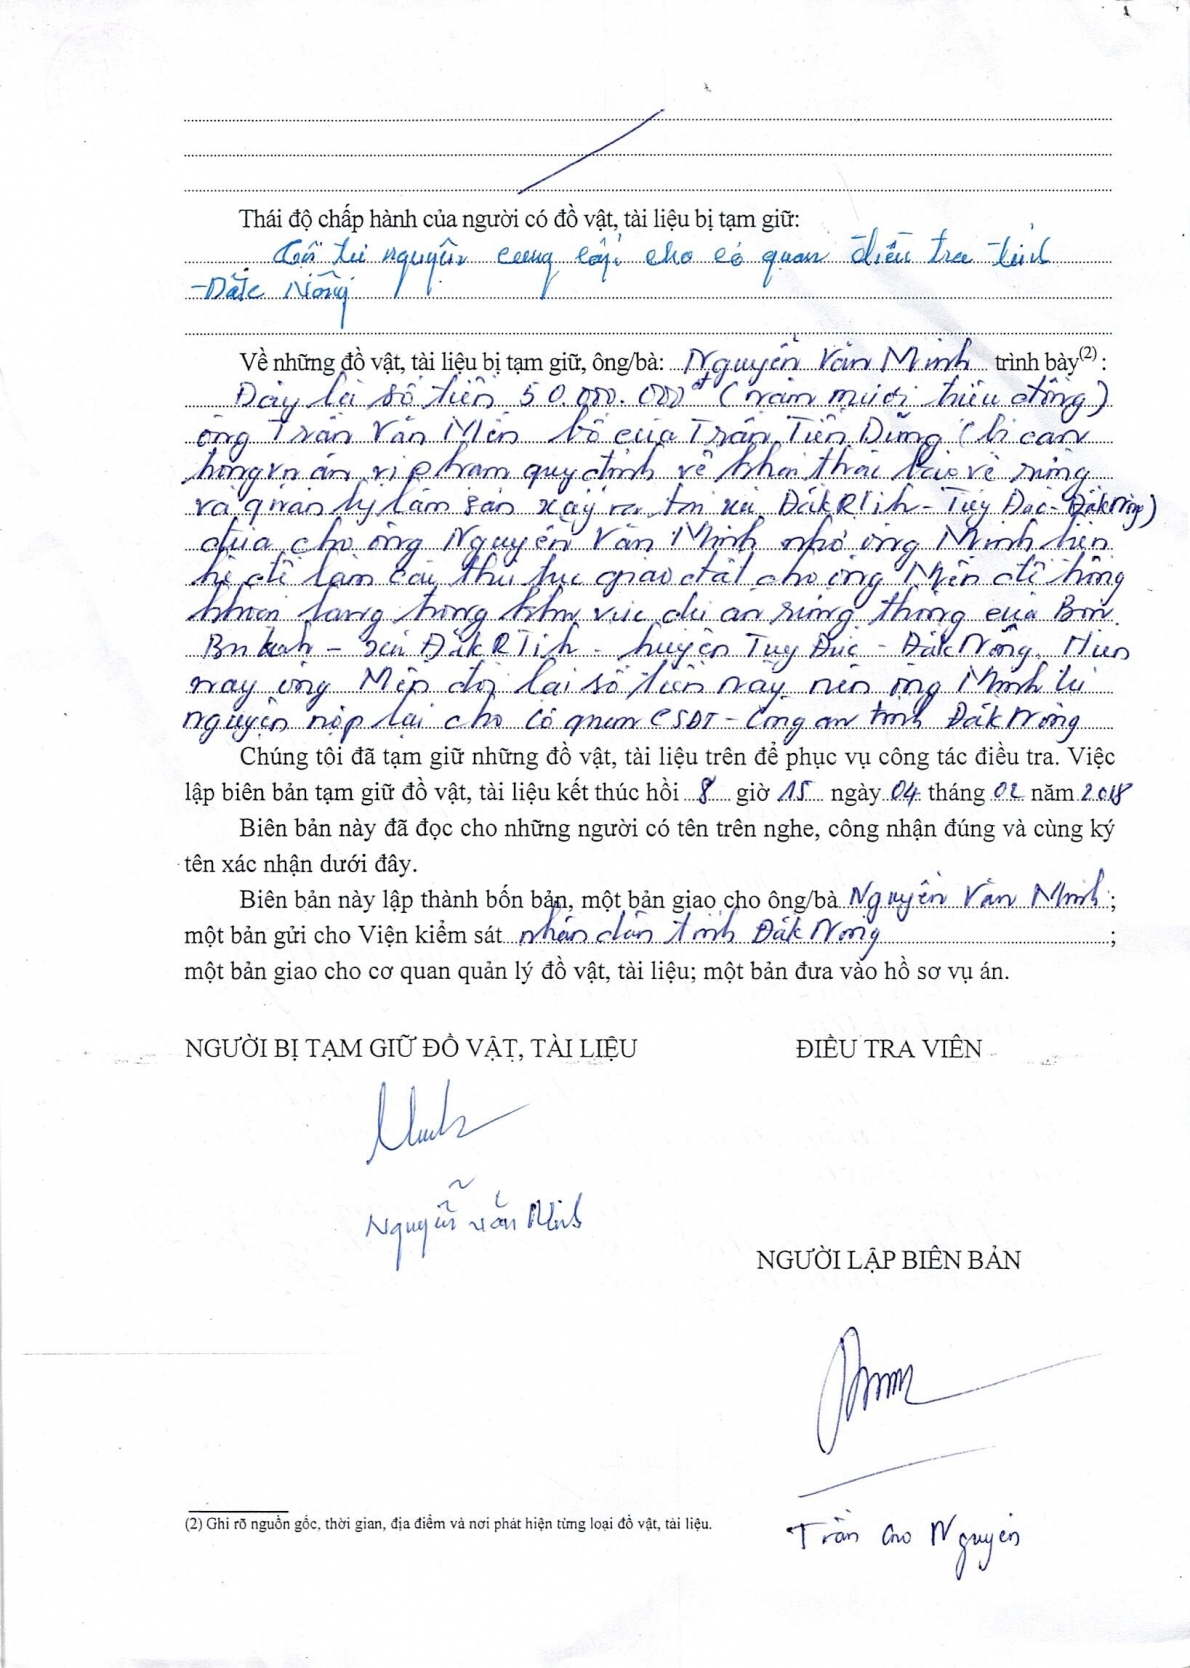 Thái độ chấp hành của người có đồ vật, tài liệu bị tạm giữ:
tự nguyện cung cấp cho cơ quan điều tra tỉnh
Đắk Nông
Về những đồ vật, tài liệu bị tạm giữ, ông/bà: Nguyễn Văn Minh trình bày(2) :
Đây là số tiền 50.000.000đ (năm mươi triệu đồng)
ông Trần Văn Mến bố của Trần Tiến Dũng (bị can
trong vụ án vi phạm quy định về khai thác bảo vệ rừng
và quản lý lâm sản xảy ra tại xã ĐắkRTih - Tuy Đức - Đắk Nông)
đưa cho ông Nguyễn Văn Minh nhờ ông Minh liên
hệ để làm các thủ tục giao đất cho ông Mến để trồng
khoai lang trong khu vực dự án rừng thông của Bon
- xã ĐắkRTih - huyện Tuy Đức - Đắk Nông. Hiện
nay ông Mến đòi lại số tiền này nên ông Minh tự
nguyện nộp lại cho Cơ quan CSĐT - Công an tỉnh Đắk Nông
Chúng tôi đã tạm giữ những đồ vật, tài liệu trên để phục vụ công tác điều tra. Việc
lập biên bản tạm giữ đồ vật, tài liệu kết thúc hồi 8 giờ 15 ngày 04 tháng 02 năm 2018
Biên bản này đã đọc cho những người có tên trên nghe, công nhận đúng và cùng ký
tên xác nhận dưới đây.
Biên bản này lập thành bốn bản, một bản giao cho ông/bà Nguyễn Văn Minh ;
một bản gửi cho Viện kiểm sát nhân dân tỉnh Đắk Nông ;
một bản giao cho cơ quan quản lý đồ vật, tài liệu; một bản đưa vào hồ sơ vụ án.
NGƯỜI BỊ TẠM GIỮ ĐỒ VẬT, TÀI LIỆU ĐIỀU TRA VIÊN
Nguyễn Văn Minh
NGƯỜI LẬP BIÊN BẢN
(2) Ghi rõ nguồn gốc, thời gian, địa điểm và nơi phát hiện từng loại đồ vật, tài liệu.
Trần Nguyên